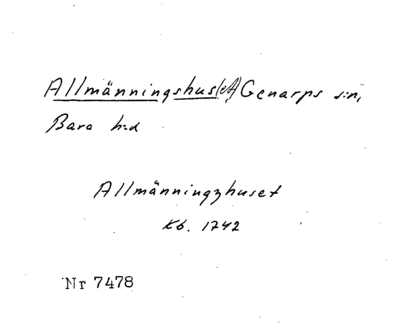 Allmänningshus(et) Genarps s:n,
Bara h:d
Allmänningzhuset
Kb. 1742
Nr 7478